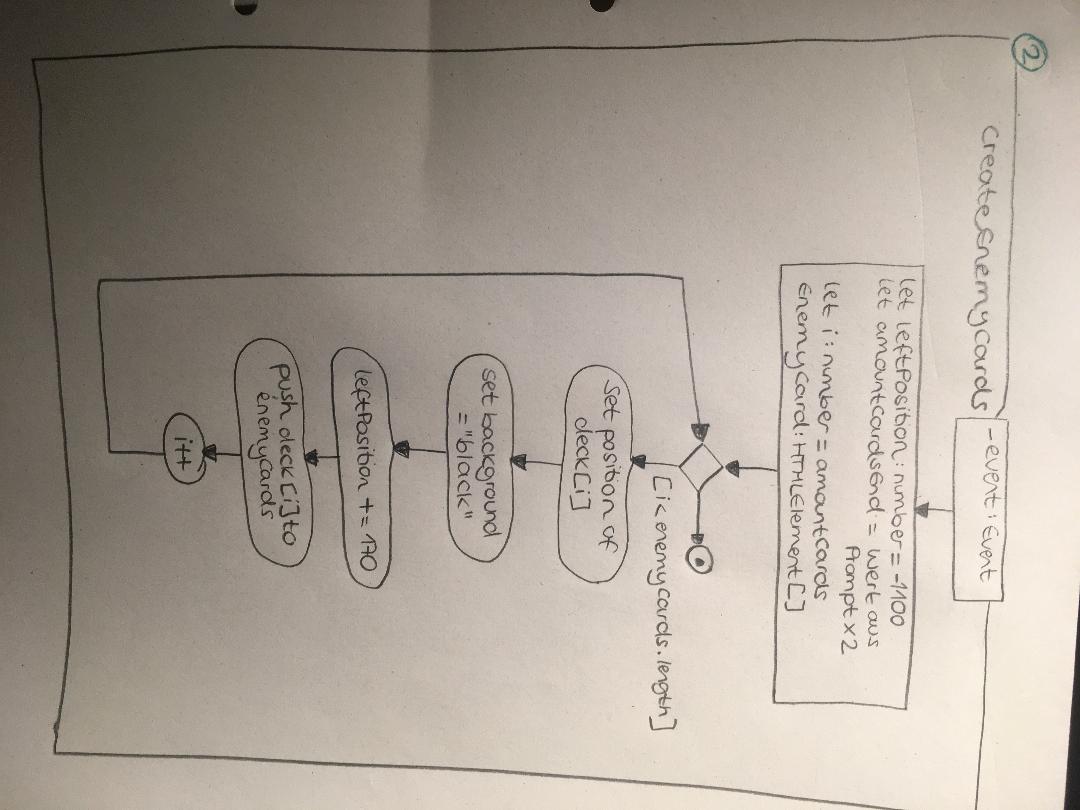 2
createEnemycards
- event : Event
let leftPosition : number = -1100
let amountcardsEnd = wert aus
Prompt x 2
let i : number = amountcards
Enemycard : HTMLElement []
[i < enemycards.length]
Set position of
deck [i]
set background
= "black"
leftPosition += 170
push deck [i] to
enemycards
i++